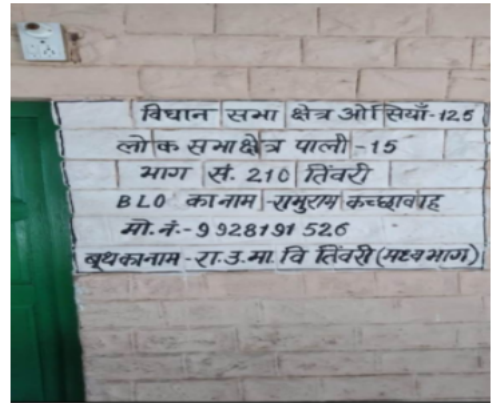 विधान सभा क्षेत्र ओसियाँ-125
लोक सभा क्षेत्र पाली-15
भाग सं. 210 तिंवरी
BLO का नाम-रामुराम कच्छावाह
मो.नं.-9928191526
बूथ का नाम-रा.उ.मा.वि तिंवरी (मध्य भाग)